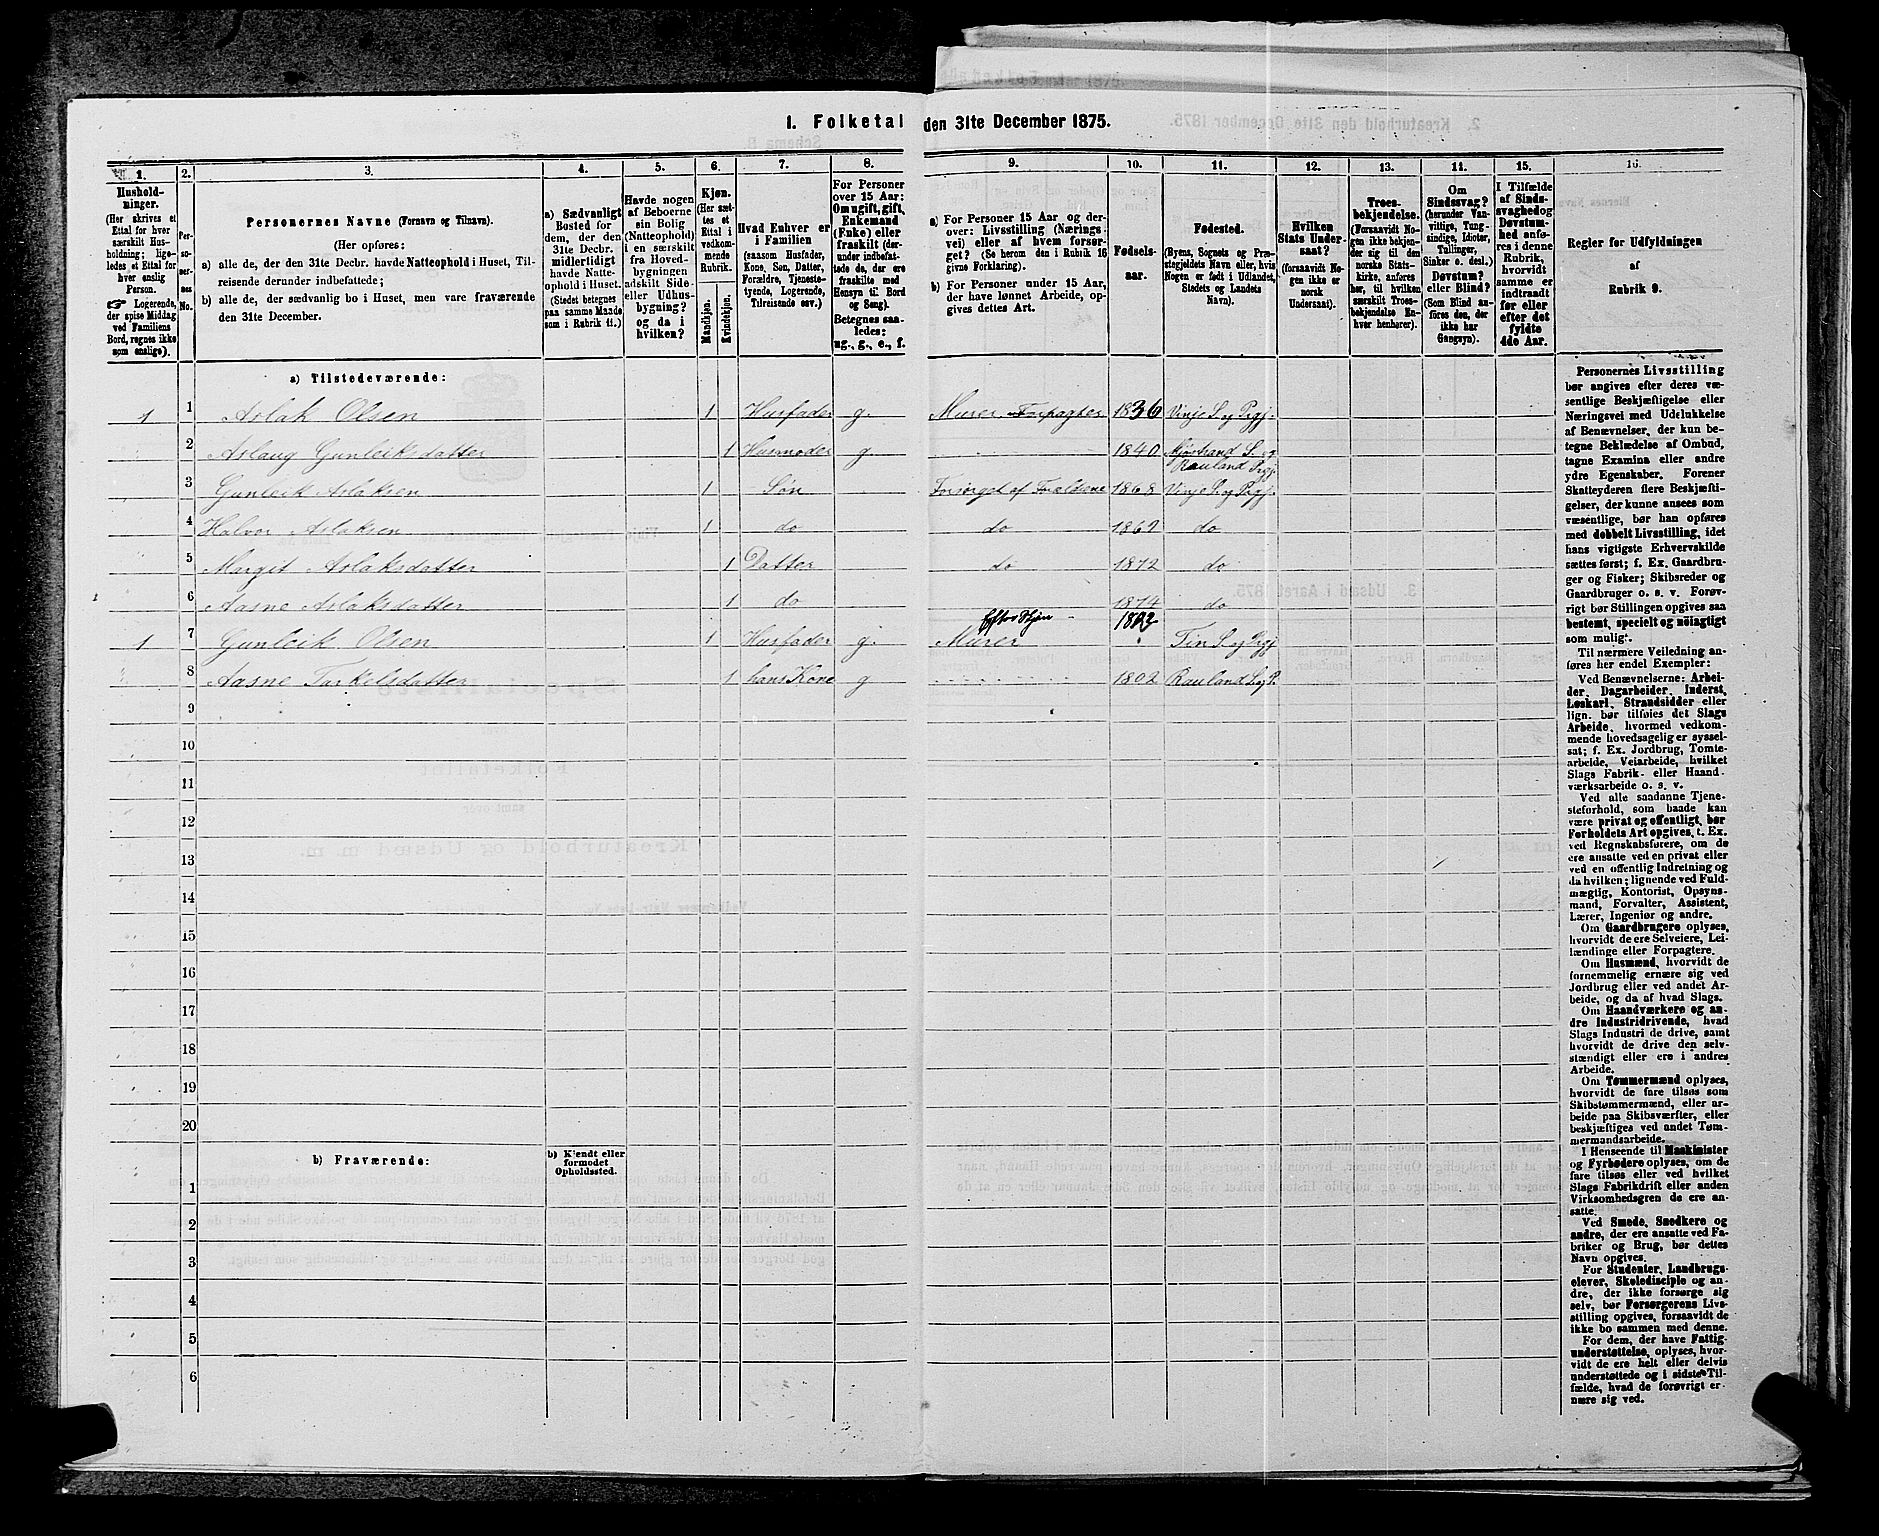 1. Folketal den 31te December 1875.
1. 2. 3. 4. 5. 6. 7. 8. 9. 10. 11. 12. 13. 14. 15. 16.
Hushold-
ninger.
(Her skrives et
Ettal for hver
særskilt Hus-
holdning; lige-
ledes et Ettal for
hver enslig
Person.
☞ Logerende,
der spise Middag
ved Familiens
Bord, regnes ikke
som enslige).
Per-
so-
ner-
nes
No.
Personernes Navne (Fornavn og Tilnavn).
(Her opføres:
a) alle de, der den 31te Decbr. havde Natteophold i Huset, Til-
reisende derunder indbefattede;
b) alle de, der sædvanlig bo i Huset, men vare fraværende
den 31te December.
a) Sædvanligt
Bosted for
dem, der den
31te Decbr.
midlertidigt
havde Natte-
ophold i Huset.
(Stedet betegnes
paa samme Maade
som i Rubrik 11.)
Havde nogen
af Beboerne
sin Bolig
(Natteophold)
i en særskilt
fra Hoved-
bygningen
adskilt Side-
eller Udhus-
bygning?
og da i
hvilken?
Kjøn.
(Her sæt-
tes et
Ettal i
vedkom-
mende
Rubrik.
Mandkjøn.
Kvindekjøn.
Hvad Enhver er
i Familien
(saasom Husfader,
Kone, Søn, Datter,
Forældre, Tjeneste-
tyende, Logerende,
Tilreisende osv.)
For Personer
over 15 Aar:
Om ugift, gift,
Enkemand
(Enke) eller
fraskilt (der-
under indbefat-
tede de, der ere
fraskilte med
Hensyn til Bord
og Seng).
Betegnes saa-
ledes:
ug., g., e., f.
a) For Personer 15 Aar og der-
over: Livsstilling (Nærings-
vei) eller af hvem forsør-
get? (Se herom den i Rubrik 16
givne Forklaring).
b) For Personer under 15 Aar,
der have lønnet Arbeide, op-
gives dettes Art.
Fødsels-
aar.
Fødested.
(Byens, Sognets og Præ-
stegjeldets Navn eller, hvis
Nogen er født i Udlandet,
Stedets og Landets
Navn).
Hvilken
Stats Under-
saat?
(forsaavidt No-
gen ikke er
norsk
Undersaat).
Troes-
bekjendelse.
(Forsaavidt No-
gen ikke bekjen-
der sig til den
norske Stats-
kirke, anføres
her, til hvilken
særskilt Troes-
bekjendelse En-
hver henhører).
Om
Sindssvag?
(herunder Van-
vittige, Tung-
sindige, Idioter,
Tullinger,
Sinker o. desl.)
Døvstum?
eller Blind?
(Som Blind an-
føres den, der
ikke har
Gangsyn).
I Tilfælde
af Sinds-
svaghed og
Døvstum-
hed anfø-
res i denne
Rubrik,
hvorvidt
samme er
indtraadt
før eller
efter det
fyldte
4de Aar.
Regler for Udfyldningen
af
Rubrik 9.
a) Tilstedeværende:
1 1 Aslak Olsen 1 Husfader g. Murer Forpagter 1836 Vinje S og Prgj.
2 Aslaug Gunleiksdatter 1 Husmoder g 1840 Mjøstrand S. og
Rauland Prgj.
3 Gunleik Aslaksen 1 Søn Forsørget af Forældrene 1868 Vinje S og Prgj.
4 Halvor Aslaksen 1 do do 1869 do
5 Margit Aslaksdatter 1 Datter do 1872 do
6 Aasne Aslaksdatter 1 do 1874 do
1802
1 7 Gunleik Olsen 1 Husfader g. Murer Tin S og Prgj
8 Aasne Tarkelsdatter 1 hans Kone g 1802 Rauland S og P.
9
10
11
12
13
14
15
16
17
18
19
20
b) Fraværende:
b) Kjendt eller
formodet
Opholdssted.
1
2
3
4
5
6
Personernes Livsstilling
bør angives efter deres væ-
sentlige Beskjæftigelse eller
Næringsvei med Udelukkelse
af Benævnelser, der kun be-
tegne Beklædelse af Ombud,
tagne Examina eller andre
ydre Egenskaber. Forener
Skatteyderen flere Beskjæfti-
gelser, der kunne ansees som
væsentlige, bør han opføres
med dobbelt Livsstilling, idet
hans vigtigste Erhvervskilde
sættes først; f. Ex. Gaardbru-
ger og Fisker; Skibsreder og
Gaardbruger o. s. v. Forøv-
rigt bør Stillingen opgives saa
bestemt, specielt og nøiagtigt
som muligt.
Til nærmere Veiledning an-
føres her endel Exempler:
Ved Benævnelserne: Arbei-
der, Dagarbeider, Inderst,
Løskarl, Strandsidder eller
lign. bør tilføies det Slags
Arbeide, hvormed vedkom-
mende hovedsagelig er syssel-
sat; f. Ex. Jordbrug, Tomte-
arbeide, Veiarbeide, hvilket
Slags Fabrik- eller Haand-
værksarbeide o. s. v.
Ved alle saadanne Tjene-
steforhold, som baade kan
være privat og offentligt, bør
Forholdets Art opgives, t. Ex.
ved Regnskabsførere, om de
ere ansatte ved en privat eller
ved en offentlig Indretning og
da hvilken; lignende ved Fuld-
mægtig, Kontorist, Opsyns-
mand, Forvalter, Assistent,
Lærer, Ingeniør og andre.
Om Gaardbrugere oplyses,
hvorvidt de ere Selveiere, Lei-
lændinge eller Forpagtere.
Om Husmænd, hvorvidt de
fornemmelig ernære sig ved
Jordbrug eller ved andet Ar-
beide, og da af hvad Slags.
Om Haandværkere og an-
dre Industridrivende, hvad
Slags Industri de drive, samt
hvorvidt de drive den selv-
stændigt eller ere i andres
Arbeide.
Om Tømmermænd oplyses,
hvorvidt de fare tilsøs som
Skibstømmermænd, eller ar-
beide paa Skibsværfter, eller
beskjæftiges ved andet Tøm-
mermandsarbeide.
I Henseende til Maskinister
og Fyrbødere oplyses, om de
fare tilsøs eller ved hvilket
Slags Fabrikdrift eller anden
Virksomhedsgren de ere an-
satte.
Ved Smede, Snedkere og
andre, der ere ansatte ved Fa-
briker og Brug, bør dettes
Navn opgives.
For Studenter, Landbrugs-
elever, Skoledisciple og an-
dre, der ikke forsørge sig
selv, bør Forsørgerens Livs-
stilling opgives, forsaavidt de
ikke bo sammen med denne.
For dem, der have Fattig-
understøttelse, oplyses, hvor-
vidt de ere helt eller delvis
understøttede og i sidste Til-
fælde, hvad de forøvrigt er-
nære sig ved.